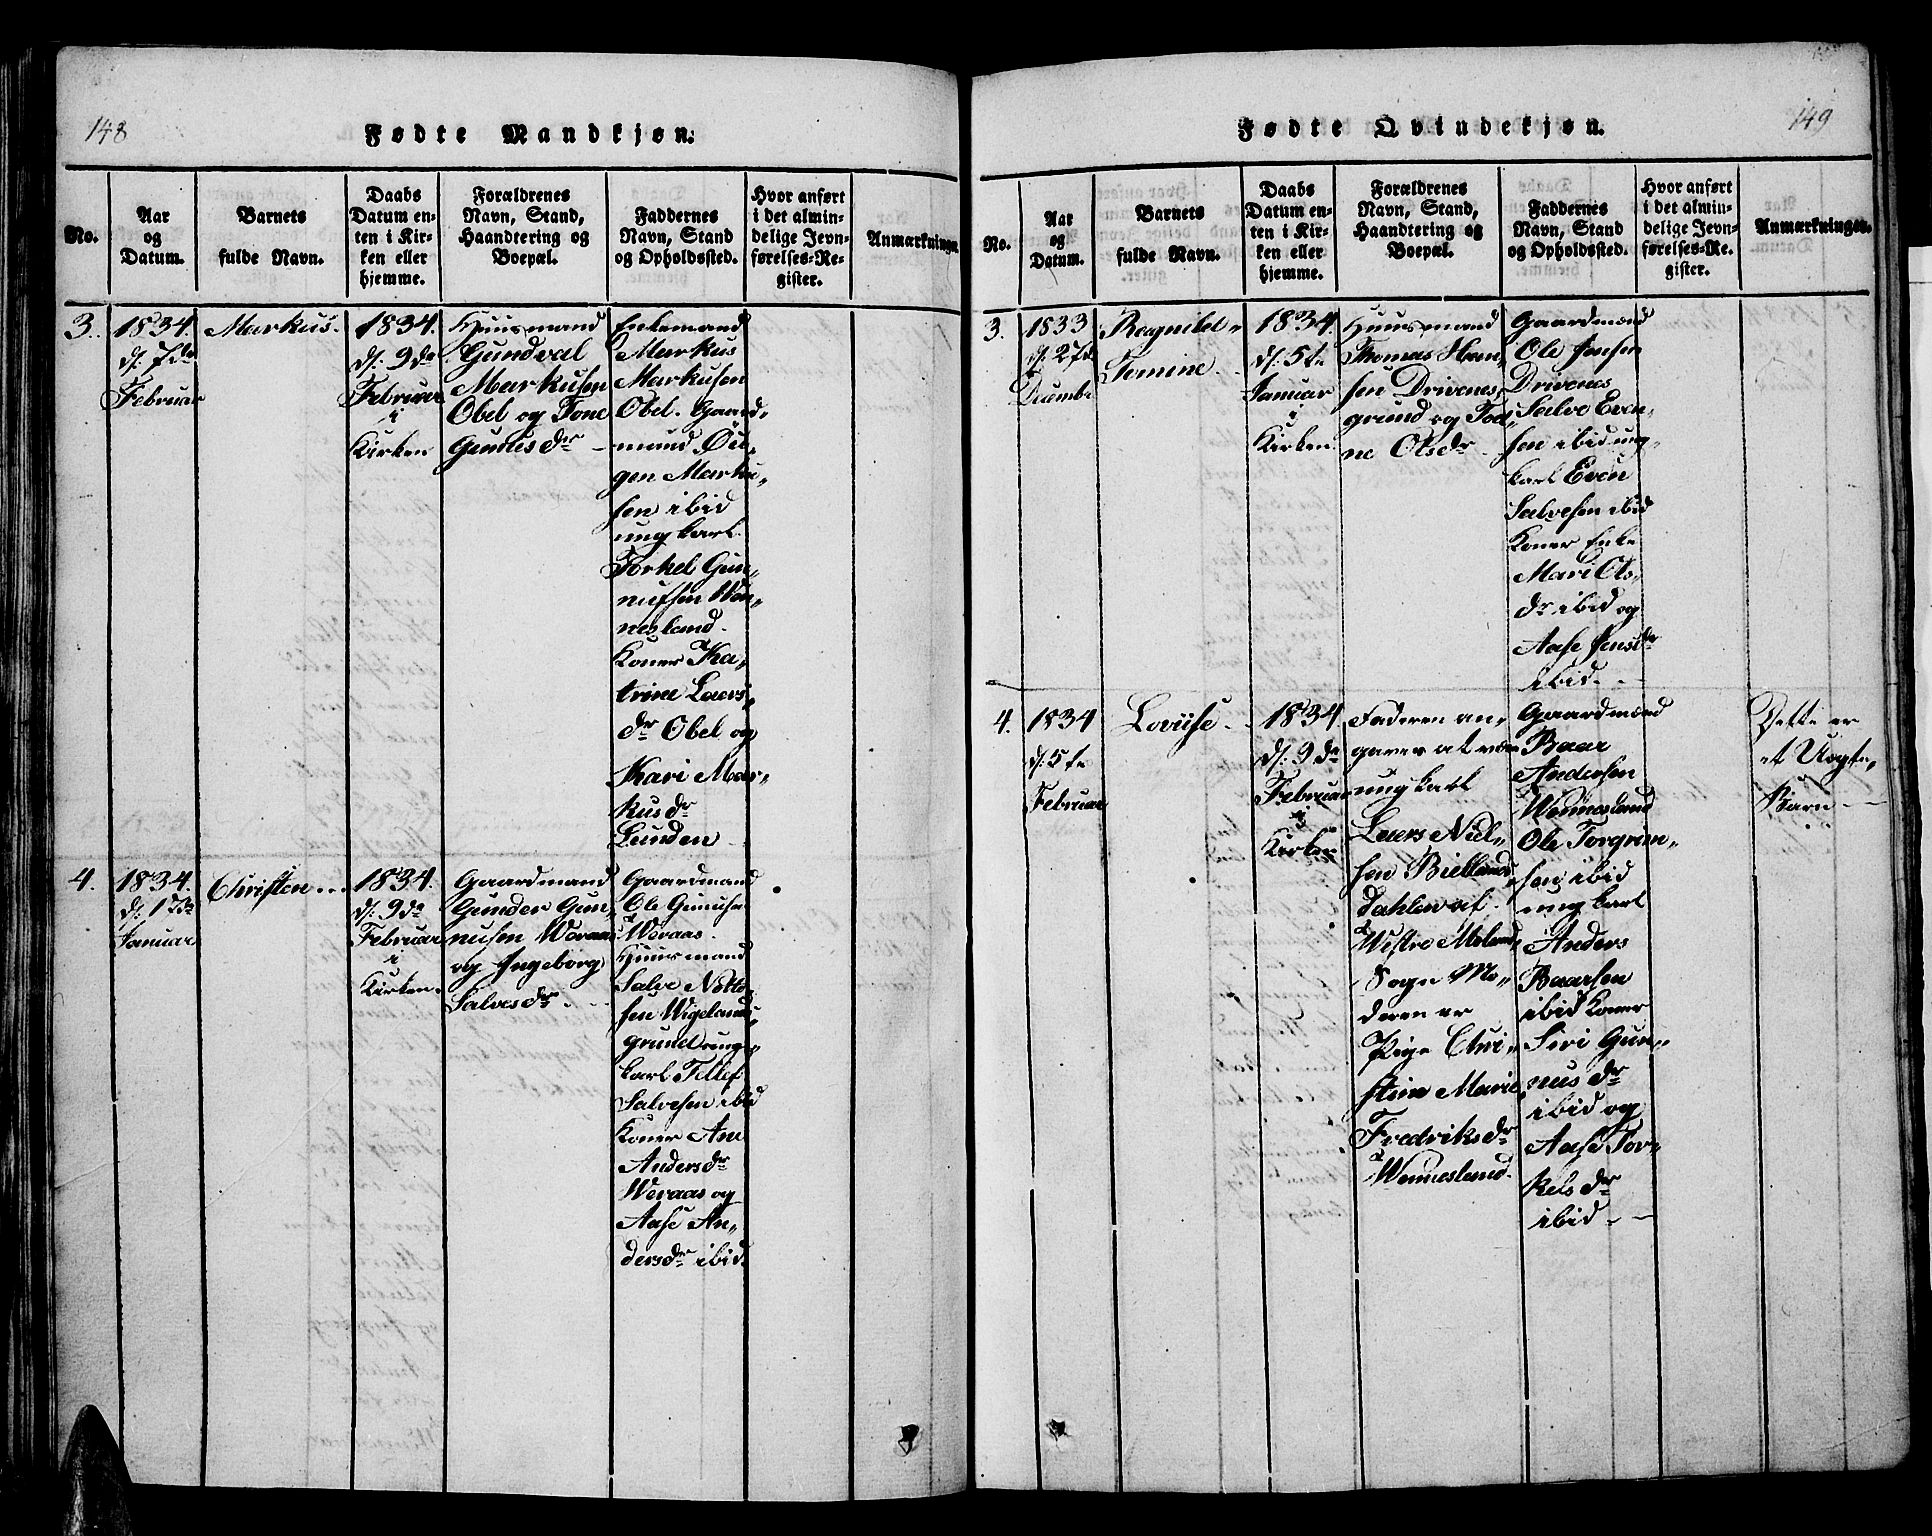 148
Fødte Mandkjøn.
No.
Aar
og
Datum.
Barnets
fulde Navn.
Daabs
Datum en-
ten i Kir-
ken eller
hjemme.
Forældrenes
Navn, Stand,
Haandtering og
Boepæl.
Faddernes
Navn, Stand
og Opholdssted.
Hvor anført
i det almin-
delige Jevn-
førelses-Re-
gister.
Anmærkninger.
3.
1834.
d: 7de
Februar
Markus.
1834.
d: 9de
Februar
i
Kirken
Huusmand
Gundval
Markusen
Obel og Tone
Gunusdr
Enkemand
Markus
Markusen
Obel. Gaard„
mand Øü„
gen Marku„
sen ibid
ungkarl
Torkel Gun„
nufsen Wen„
nesland.
Koner Ka„
trine Laers„
dr Obel og
Kari Mar„
kusdr
Lunden
4.
1834.
d: 13de
Januar
Christen
1834.
d: 9de
Februar
i
Kirken.
Gaardmand
Gunder Gun„
nusen Weraas
og Ingeborg
Salvesdr
Gaardmand
Ole Gunusen
Weraas.
Huusmand
Salve Notto„
sen Wigelands„
grund ung„
karl Tellef
Salvesen ibid
Koner Ane
Andersdr
Weraas og
Aase An„
dersdr ibid.
149
Fødte Qvindekjøn.
No.
Aar
og
Datum.
Barnets
fulde Navn.
Daabs
Datum en-
ten i Kir-
ken eller
hjemme.
Forældrenes
Navn, Stand,
Haandtering og
Boepæl.
Faddernes
Navn, Stand
og Opholdssted.
Hvor anført
i det almin-
delige Jevn-
førelses-Re-
gister.
Anmærkninger.
3.
1833
d: 27de
Decembr
Ragnild
Tomine
1834.
d: 5te
Januar
i
Kirken
Huusmand
Thomas Han„
sen Drivenes„
grund og Tod„
ne Olsdr
Gaardmænd
Ole Jensen
Drivenes
Salve Even„
sen ibid ung„
karl Even
Salvesen ibid
Koner Enke
Mari Ols„
dr ibid og
Aase Jensdr
ibid.
4.
1834
d: 5te
Februar
Lovise
1834.
d: 9de
Februar
i
Kirken
Faderen an„
gaves at være
ungkarl
Laers Niel„
sen Biellands„
dahlen af
Westre Moland
Sogn Mo„
deren er
Pige Chri„
stine Marie
Fredriksdr
Wennesland.
Gaardmænd
Baar
Andersen
Wennesland
Ole Torgrim„
sen ibid
ungkarl
Anders
Baarsen
ibid Koner
Siri Gun„
nusdr
ibid og
Aase Tor„
kelsdr
ibid
Dette er
et Uægte„
Barn